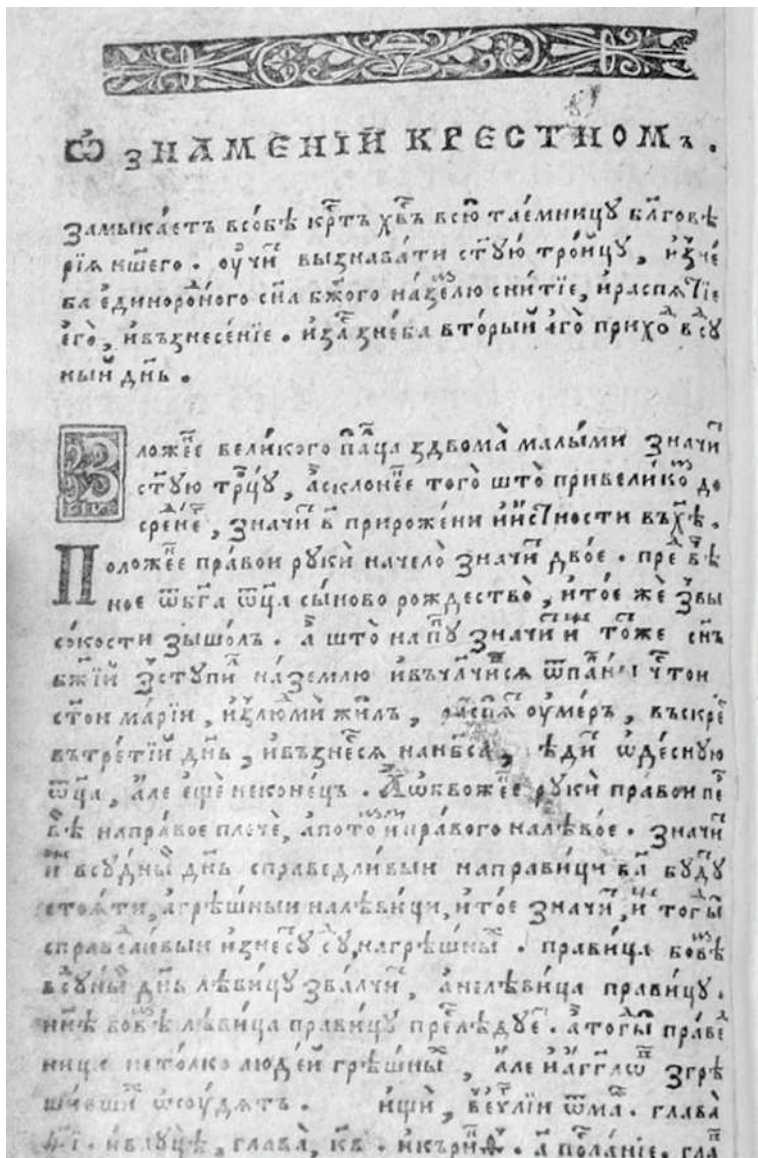 Ѡ ЗНАМЕНІЙ КРЕСТНОМЪ .
Замыкаетъ всобѣ крⷭ҇тъ хв҃ъ всю таемницу бл҃говѣ
рїѧ нш҃его . оучиⷮ вызнавати ст҃ую тройцу , изне
ба единородⷩ҇ого сн҃а бж҃ого наземлю снитїе , ираспѧтїе
его , ивъзнесенїе . изаⷭ҇ знеба вторый его прихоⷣ всуⷣ
ный дн҃ь .
Вложеⷩ҇е великого палца здвома малыми значиⷮ
ст҃ую трⷪ҇цу , асклонеⷩ҇е того што привеликоⷨ до
среⷣнеⷢ҇ , значиⷮ в҃ прирожени иистности въхⷭ҇ѣ .
Положеⷩ҇е правои руки начело значиⷮ двое . преⷣвѣⷱ
ное ѿбг҃а ѿц҃а сыново рождество , итое же звы
сокости зышолъ . а што напуⷫ значиⷮ иⷤ тоⷭ҇ же сн҃ъ
бж҃їй зступиⷧ наземлю ивъчл҃чисѧ ѿпан҃ны чⷭ҇тои
ст҃ои марїи , излюⷣми жилъ , распѧⷮ оумеръ , въскреⷭ҇
вътретїй дн҃ь , ивъзнеⷭ҇сѧ нанб҃са , сѣдиⷮ ѡдесную
ѿц҃а , але еще неконецъ . Аѡбвоже́ⷩ҇е руки правои пеⷬ
вѣй направое плече , апотоⷨ справого налѣвое . значиⷮ
иⷤ всудный дн҃ь справедливыи направици бл҃ будуⷮ
стоѧти , агрѣшныи налѣвици , итое значиⷮ , иⷤ тогды
справеⷣливыи изнесуⷮ суⷣ , нагрѣшныⷯ . правица боⷡ҇ѣⷨ
всуⷣный дн҃ь лѣвицу звалчиⷮ , анелѣвица правицу .
нн҃ѣ бовѣⷨ лѣвица правицу преслѣдуеⷮ . атогды правеⷣ
ници нетолко людей грѣшныⷯ , але иагг҃лоⷡ҇ згрѣ
шившиⷯ ѡсоудѧтъ . ищи , веѵⷢ҇лїи ѿмаⷮ . глава
ивлуцѣ , глава , кв҃ . икъринⷴ . а҃ посланїе . глаⷡ҇